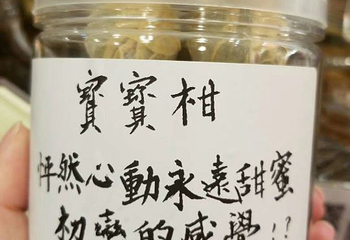 寶寶柑
怦然心動永遠甜蜜
初戀的感覺!?